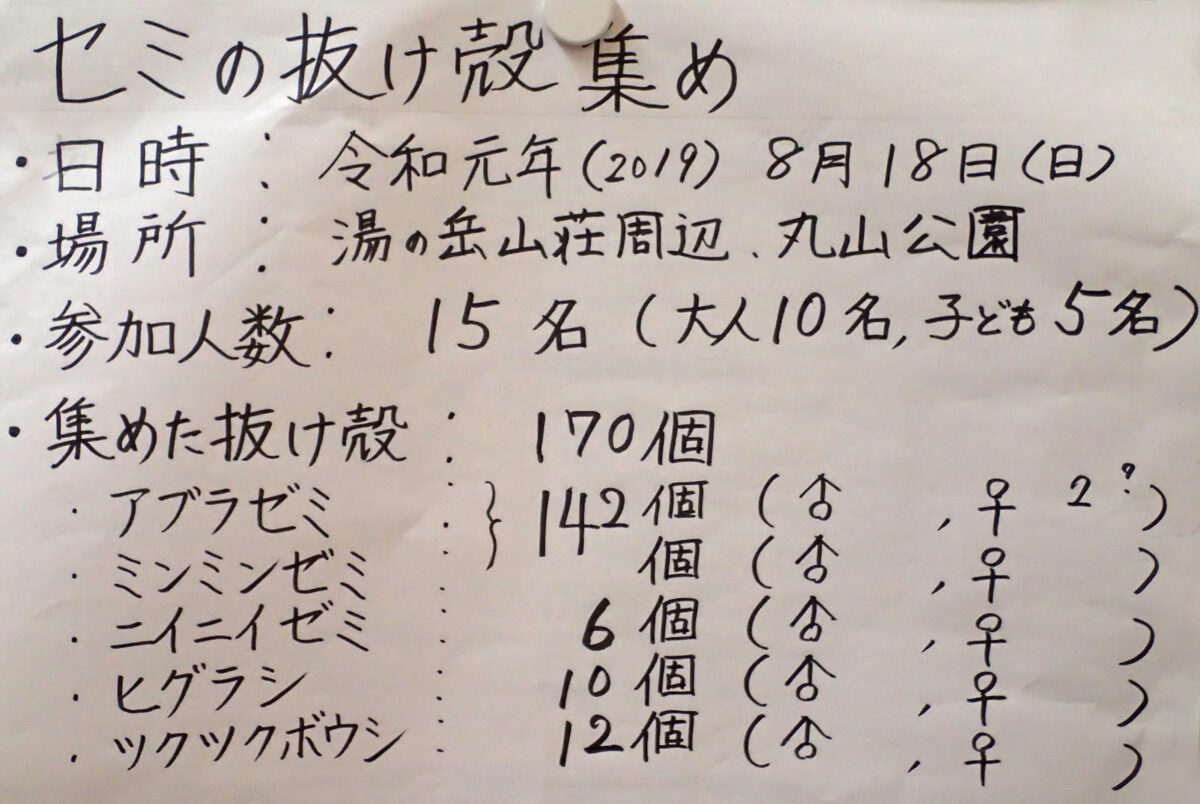 セミの抜け殻集め
・日時：令和元年(2019) 8月18日(日)
・場所：湯の岳山荘周辺、丸山公園
・参加人数：15名(大人10名,子ども5名)
・集めた抜け殻：170個
・アブラゼミ：} 142個(♂ ,♀ 2?)
・ミンミンゼミ：個(♂ ,♀ )
・ニイニイゼミ：6個(♂ ,♀ )
・ヒグラシ：10個(♂ ,♀ )
・ツクツクボウシ：12個(♂ ,♀ )